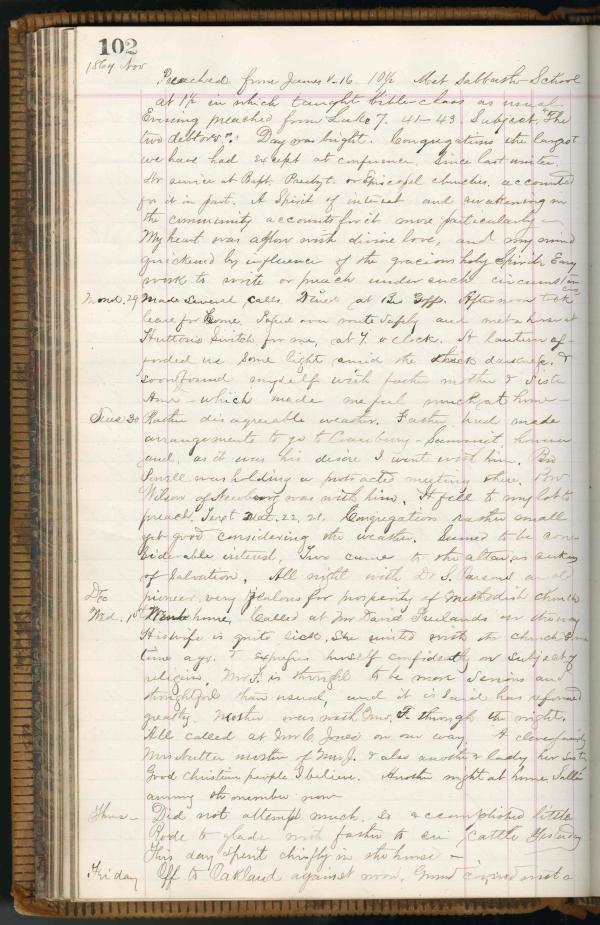 102
1869 Nov
Preached from James 5.16. 10½ Met Sabbath-School
at 1½ in which taught bible-class as usual
Evening preached from Luke 7. 41-43 Subject "The
two debtors". Day was bright. Congregations the largest
we have had except at conference. Since last winter.
No service at Bapt. Presbyt. or Episcopal churches. accounted
for it in part. A Spirit of interest and awakening in
the community accounts for it more particularly -
My heart was aglow with divine love, and my mind
quickened by influence of the gracious holy Spirit. Easy
work to write or preach under such circumstances
Mond. 29 Made several calls. Dined at Bro Goffs. Afternoon took
leave for home. Taped over route safely and met a horse at
Hutton's Switch for me, at 7 o'clock. A lantern af-
forded us some light amid the thick darkness. &
soon found myself with father mother & Sister
Ann - which made me feel much at home -
Tues 30 Rather disagreeable weather. Father had made
arrangements to go to Cranbury-Summit however
and, as it was his desire I went with him. Bro
was holding a protracted meeting there. Bro
Wilson of Newburg was with him. It fell to my lot to
preach. Text Mat. 22, 21. Congregation rather small
yet good considering the weather. Seemed to be con-
siderable interest. Two came to the altar as seekers
of Salvation. All night with Dr S. Parsons an old
Dec pioneer very zealous for prosperity of Methodist church
Wed. 1st Went home. Called at Mr David Freelands on the way
His wife is quite sick. She united with the church some
time ago. & expresses herself confidently on subject of
religion. Mr F. is thought to be more serious and
thoughtful than usual, and it is said has reformed
greatly. Mother was with Mrs. F. through the night.
All called at Mr C. Jones on our way. A clever family
Mrs Nutter mother of Mrs J. & also another lady her sister
Good christian people I believe. Another night at home. Sallie
among the number now
Thurs - Did not attempt much. so accomplished little
Rode to glade with father to see cattle Yesterday
This day spent chiefly in the house -
Friday Off to Oakland against noon. Ground covered with a